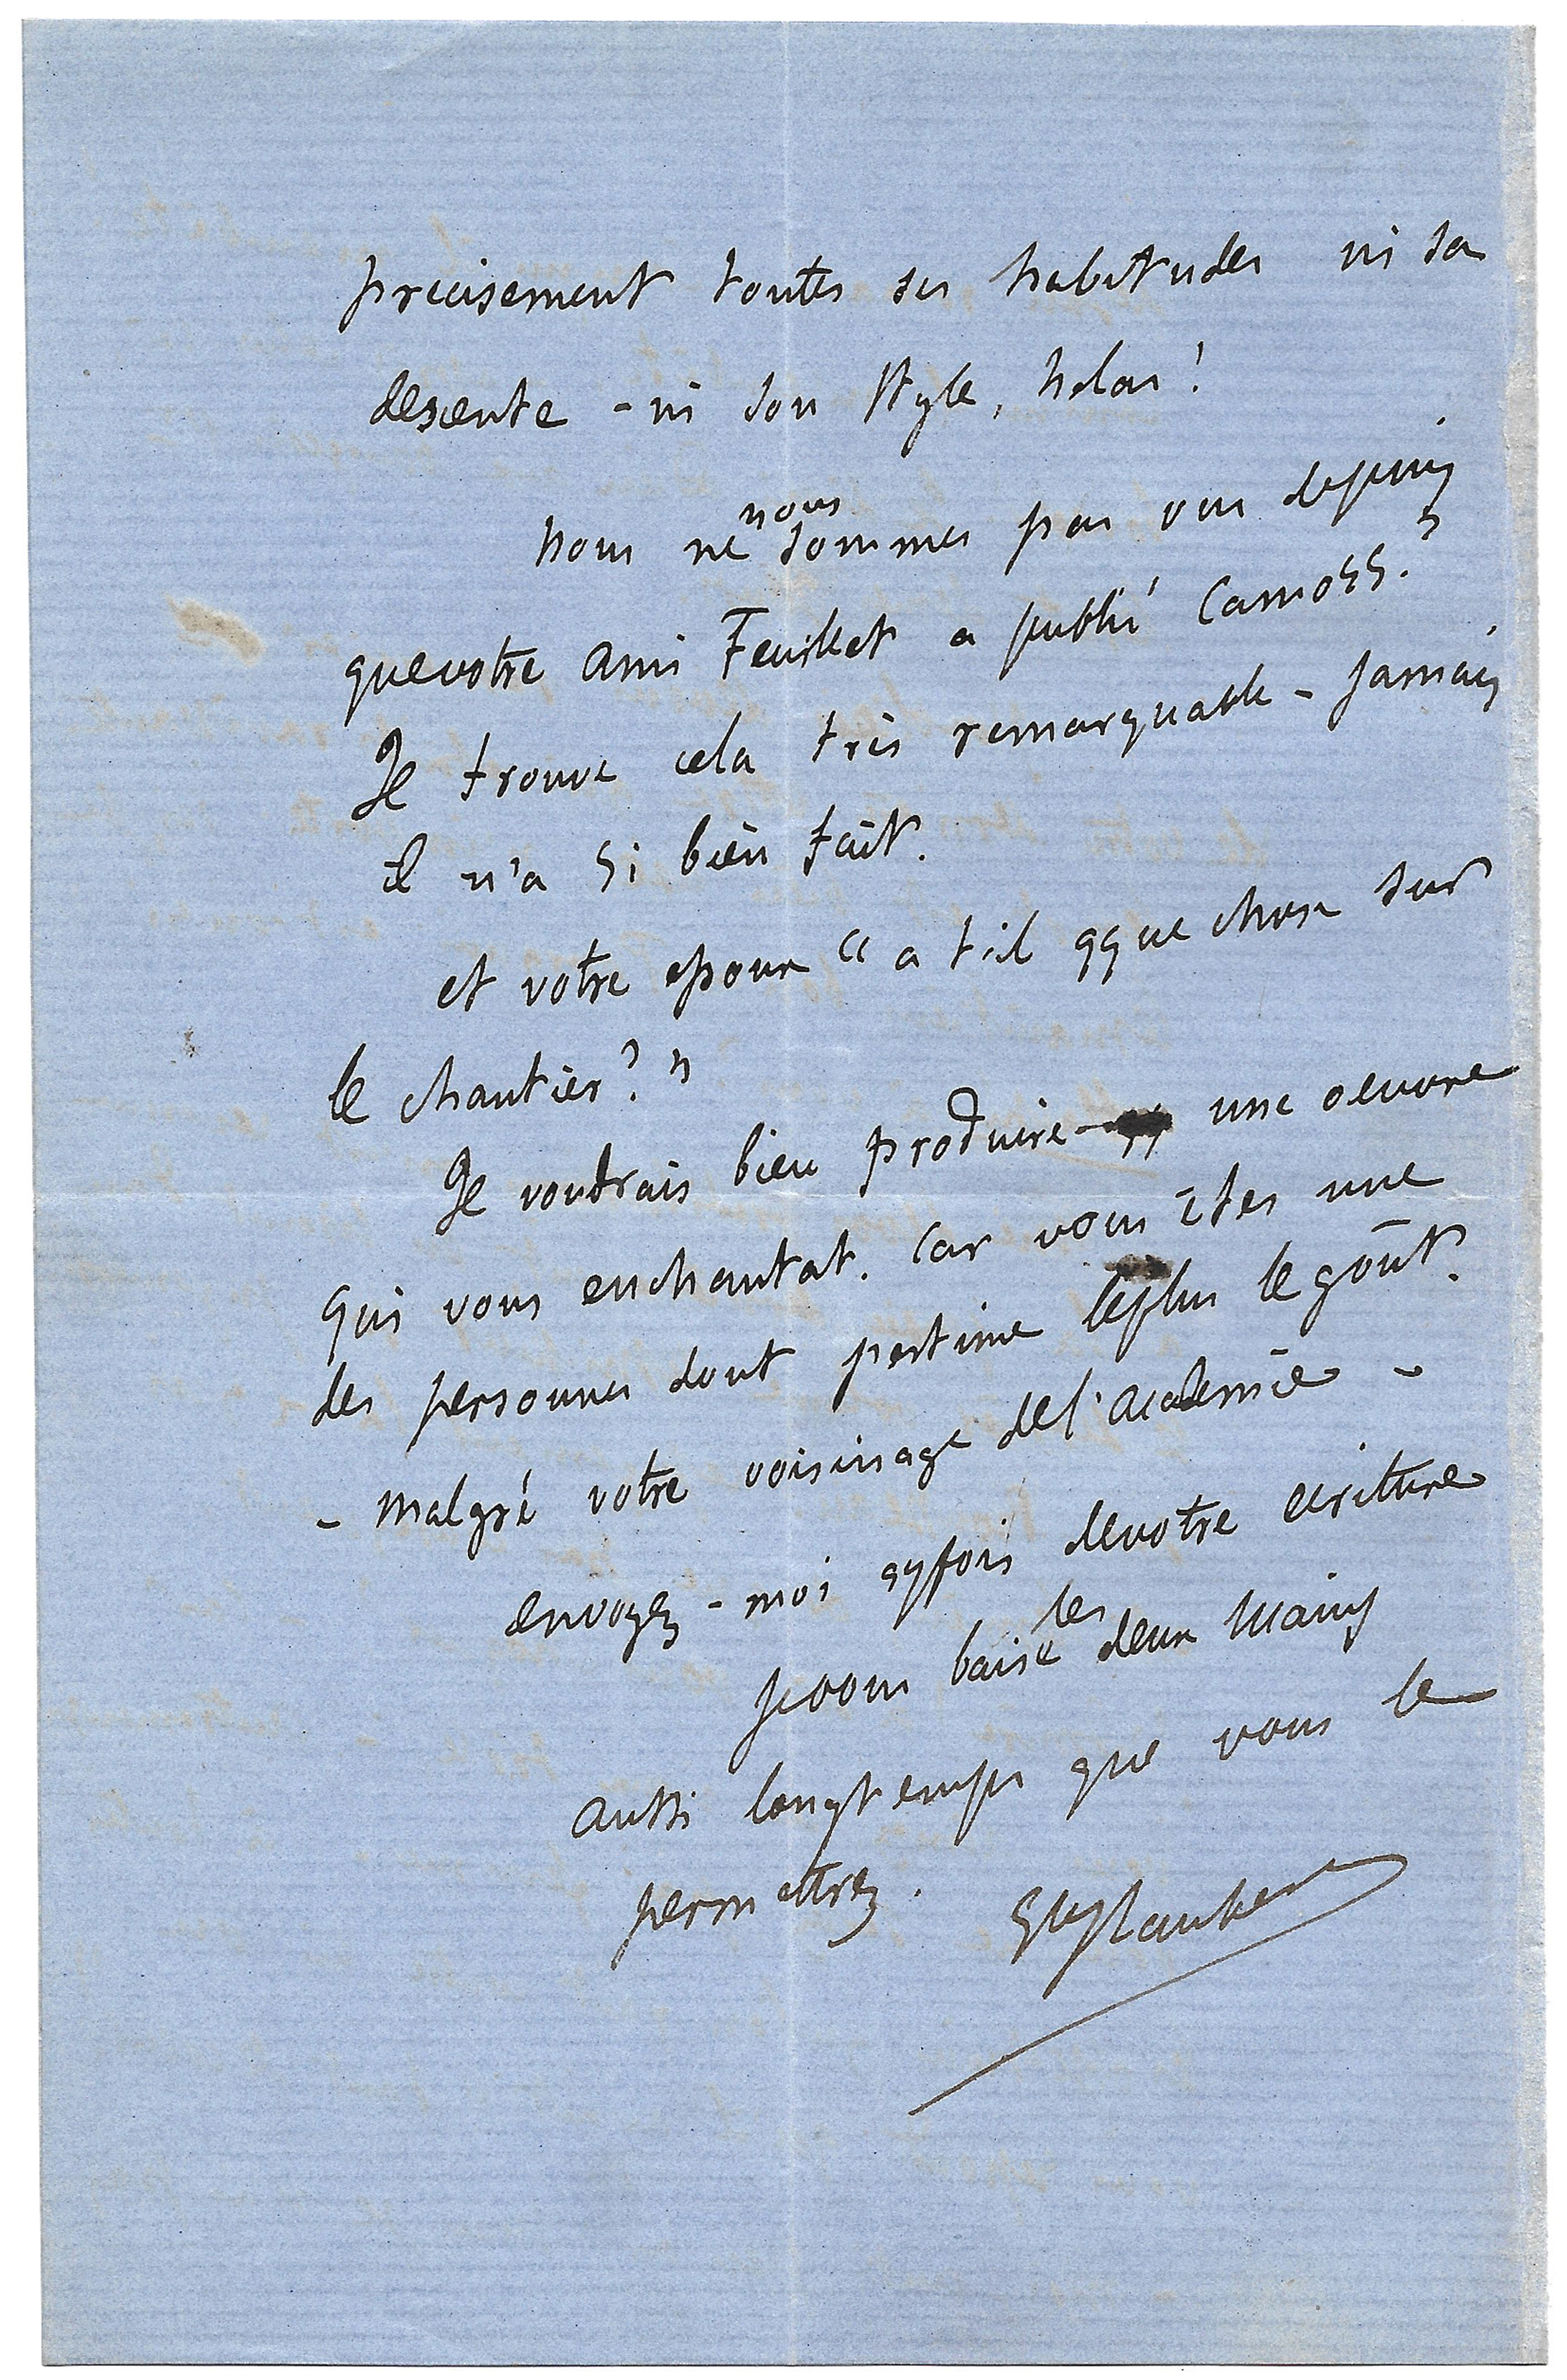 precisement toutes ses habitudes ni sa
descente - ni son style, helas !
nous ne nous sommes pas vus depuis
que votre ami Feuillet a publié Camors. ?
Je trouve cela très remarquable - jamais
il n'a si bien fait.
et votre epoux " a t'il qque chose sur
le chantier ? "
Je voudrais bien produire une oeuvre
qui vous enchantat. Car vous êtes une
des personnes dont j'estime le plus le goût.
- malgré votre voisinage de l'academie -
envoyez - moi qqfois de votre ecriture
je vous baise les deux mains
aussi longtemps que vous le
permettrez. Gve Flaubert